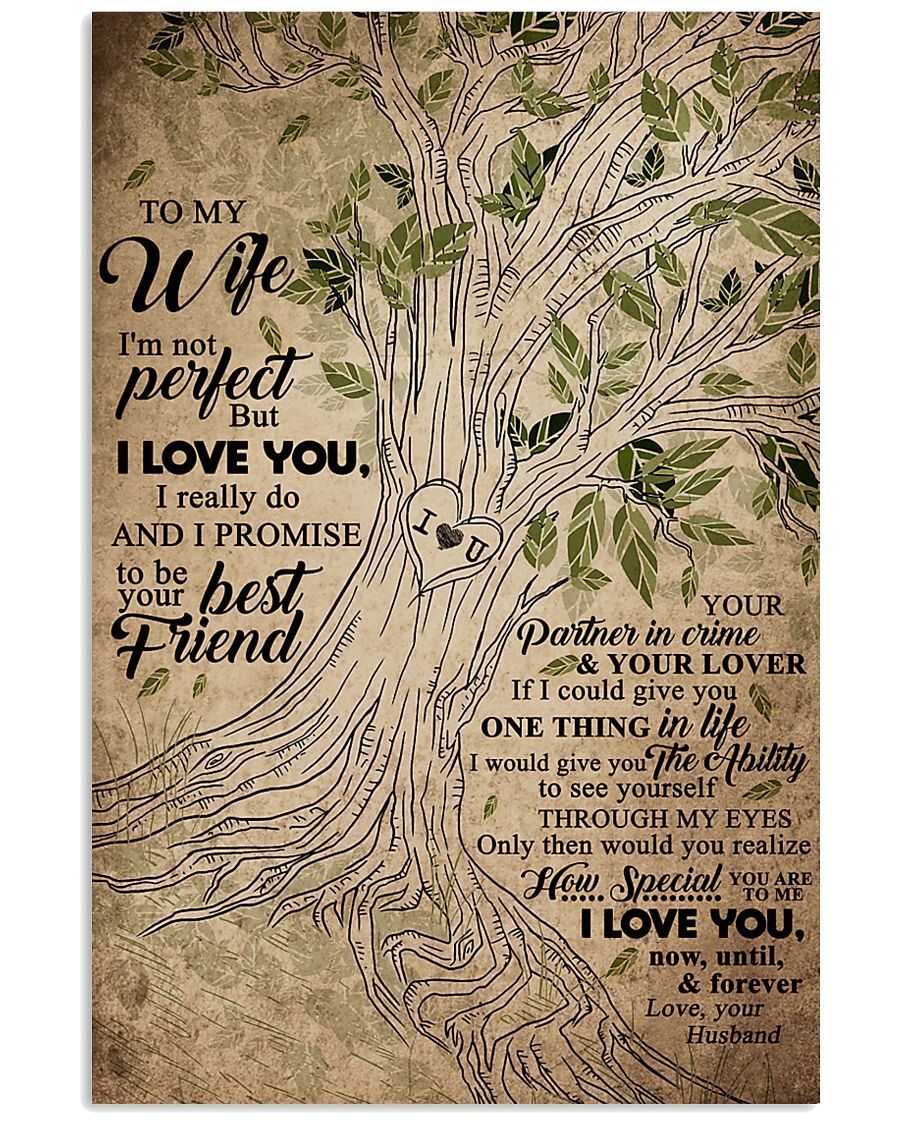 TO MY
Wife
I'm not
perfect
But
I LOVE YOU,
I really do
AND I PROMISE
to be
your best
Friend
I ♥ U
YOUR
Partner in crime
& YOUR LOVER
If I could give you
ONE THING in life
I would give you The Ability
to see yourself
THROUGH MY EYES
Only then would you realize
How..... Special......... YOU ARE
TO ME
I LOVE YOU,
now, until,
& forever
Love, your
Husband